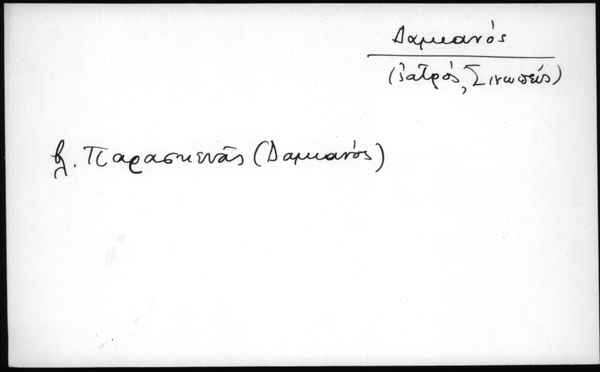 Δαμιανός
(ἰατρός, Σινωπεύς)
βλ. Παρασκευᾶς (Δαμιανός)